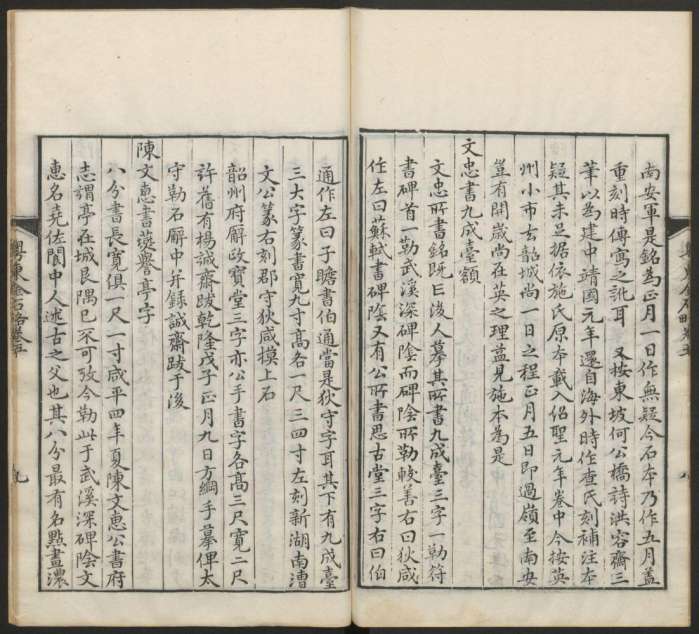 南安軍是銘為正月一日作無疑今石本乃作五月蓋
重刻時傳寫之訛耳又按東坡何公橋詩洪容齋三
筆以為建中靖國元年還自海外時作查氏刻補注本
疑其未足據依施氏原本載入紹聖元年卷中今按英
州小市去韶城尚一日之程正月五日即過嶺至南安
豈有開歲尚在英之理益見施本為是
文忠書九成臺額
文忠所書銘既曰後人摹其所書九成臺三字一勒符
書碑首一勒武溪深碑陰而碑陰所勒較善右曰狄咸
任左曰蘇軾書碑陰又有公所書思古堂三字右曰伯
通作左曰子瞻書伯通當是狄守字耳其下有九成臺
三大字篆書寬九寸高各一尺三四寸左刻新湖南漕
文公篆右刻郡守狄咸摸上石
韶州府廨政寶堂三字亦公手書字各高三尺寬二尺
許舊有楊誠齋跋乾隆戊子正月九日方綱手摹俾太
守勒石廨中并錄誠齋跋于後
陳文惠書薿譽亭字
八分書長寬俱一尺一寸咸平四年夏陳文惠公書府
志謂亭在城艮隅已不可攷今勒此于武溪深碑陰文
惠名堯佐閬中人述古之父也其八分最有名點畫濃
粵東金石略卷五
九